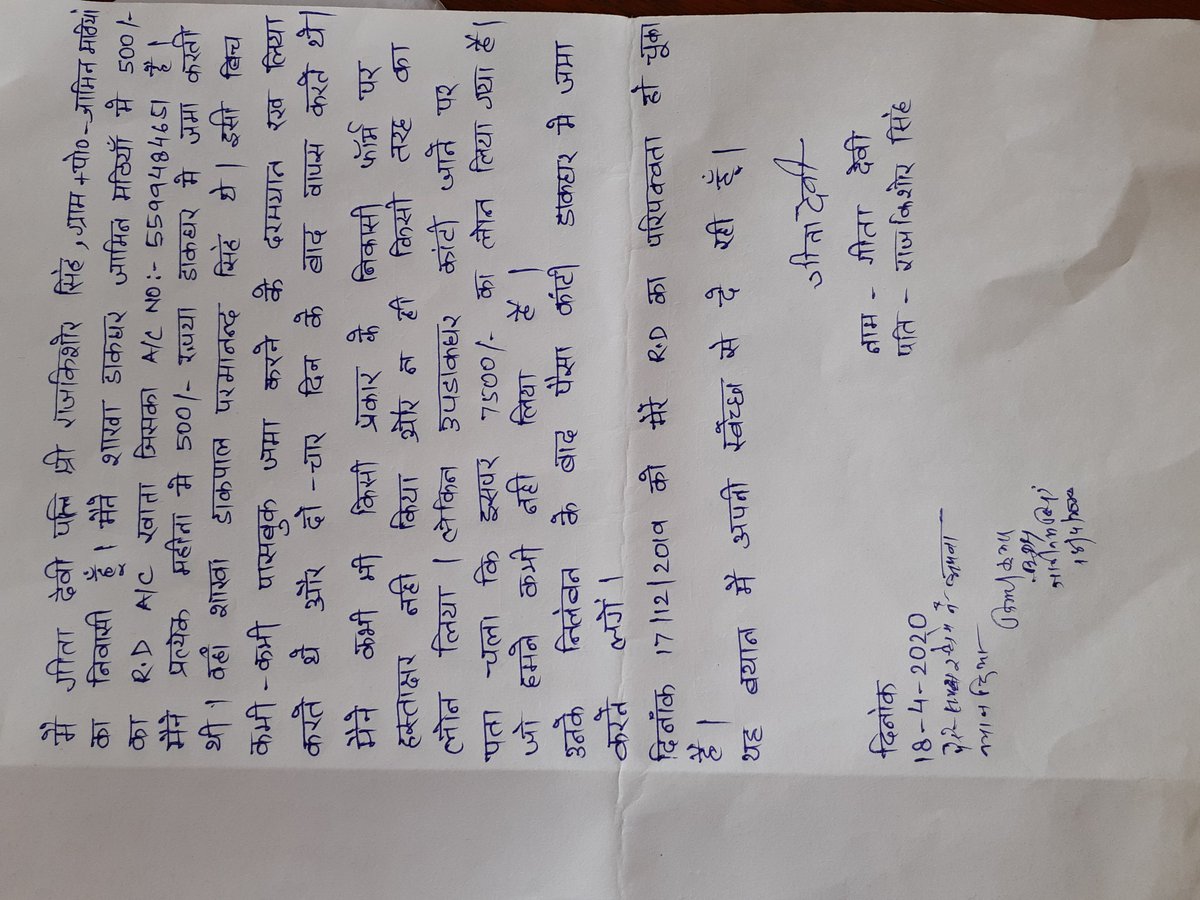 मै गीता देवी पत्नि श्री राजकिशोर सिंह, ग्राम+पो०-जामिन मठियां
का निवासी हूँ। मैने शाखा डाकघर जामिन मठियाँ मे 500/-
का R.D A/C खाता जिसका A/C NO:- 5599484651 है।
मैने प्रत्येक महीना मे 500/- रुपया डाकघर मे जमा करती
थी। वहाँ शाखा डाकपाल परमानन्द सिंह थे। इसी बिच
कभी-कभी पासबुक जमा करने के दरमयान रख लिया
करते थे और दो-चार दिन के बाद वापस करते थे।
मैने कभी भी किसी प्रकार के निकासी फॉर्म पर
हस्ताक्षर नही किया और न ही किसी तरह का
लोन लिया। लेकिन उपडाकघर कांटी जाने पर
पता चला कि इसपर 7500/- का लोन लिया गया है।
जो हमने कभी नही लिया है।
उनके निलंबन के बाद पैसा कांटी डाकघर मे जमा
करने लगें।
दिनाँक 17/12/2019 को मेरे R.D का परिपक्वता हो चूका
है।
यह बयान मैं अपनी स्वेच्छा से दे रही हूँ।
गीता देवी
नाम - गीता देवी
पति - राजकिशोर सिंह
दिनांक
18-4-2020